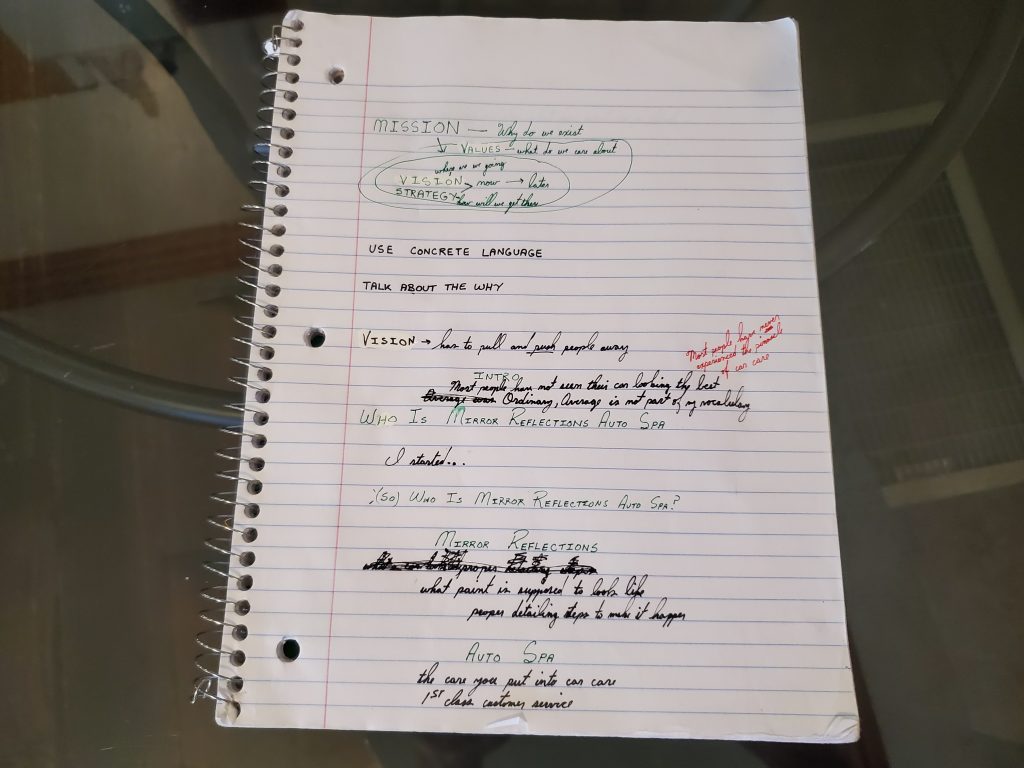 MISSION — Why do we exist
VALUES – what do we care about
where are we going
VISION now → later
STRATEGY how will we get there
USE CONCRETE LANGUAGE
TALK ABOUT THE WHY
VISION → has to pull and push people away
Most people have never
experienced the pinnacle
of car care
INTRO
Most people have not seen their car looking the best
Average was Ordinary, Average is not part of my vocabulary
WHO IS MIRROR REFLECTIONS AUTO SPA
I started...
(SO) WHO IS MIRROR REFLECTIONS AUTO SPA?
MIRROR REFLECTIONS
proper
what paint is supposed to look like
proper detailing steps to make it happen
AUTO SPA
the care you put into car care
1ST class customer service